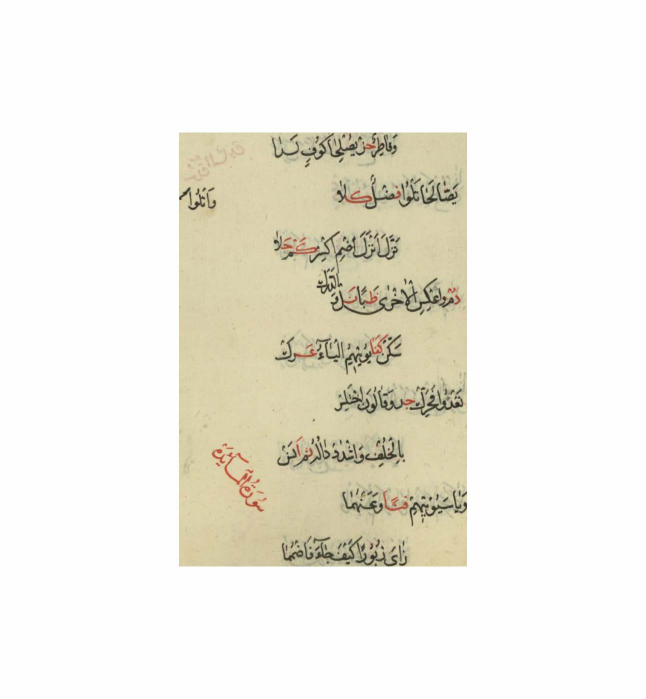 وفاطر حز يصلحا كوف لدا
يصّالحا تلوا فضل كلا
وان تلوا
نزّل انزل اضمم اكسر كم حلا
دم واعكس الاخرى ظبا نل والدرك
سكّن كفا يوتيهم الياء عرك
تعدوا فحرك جد وقالون اختلس
بالخلف واشدد داله ثم انس
ويا سيوتيهم فتا وعنهما
سورة المائدة
زاى زبورا كيف جاء فاضمما